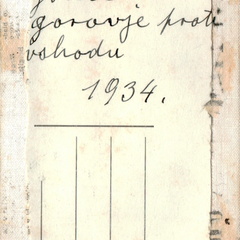 gorovje proti
vshodu
1934.